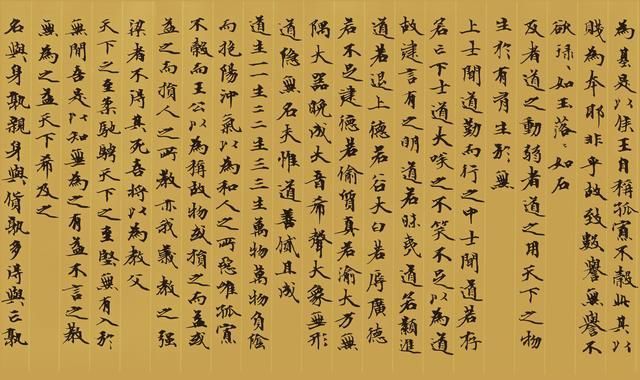 為基是以侯王自稱孤寡不穀此其以
賤為本耶非乎故致數譽無譽不
欲琭〻如玉落〻如石
反者道之動弱者道之用天下之物
生於有有生於無
上士聞道勤而行之中士聞道若存
若亡下士道大咲之不笑不足以為道
故建言有之明道若昧夷道若纇進
道若退上德若谷大白若辱廣德
若不足建德若偷質真若渝大方無
隅大器晚成大音希聲大象無形
道隱無名夫惟道善貸且成
道生一一生二二生三三生萬物萬物負陰
而抱陽沖氣以為和人之所惡唯孤寡
不穀而王公以為稱故物或損之而益或
益之而損人之所教亦我義教之強
梁者不得其死吾將以為教父
天下之至柔馳騁天下之至堅無有入於
無間吾是以知無為之有益不言之教
無為之益天下希及之
名與身孰親身與貨孰多得與亡孰